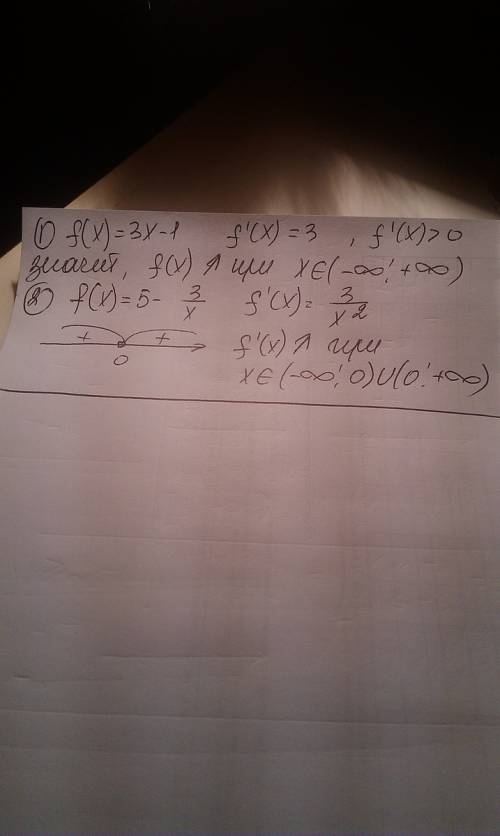 ① f(x)=3x-1 f'(x)=3 , f'(x)>0
значит, f(x) ↗ при x∈(-∞; +∞)
② f(x)=5-3/x f'(x)=3/x²
+ + 
0
f'(x) ↗ при
x∈(-∞; 0)∪(0; +∞)